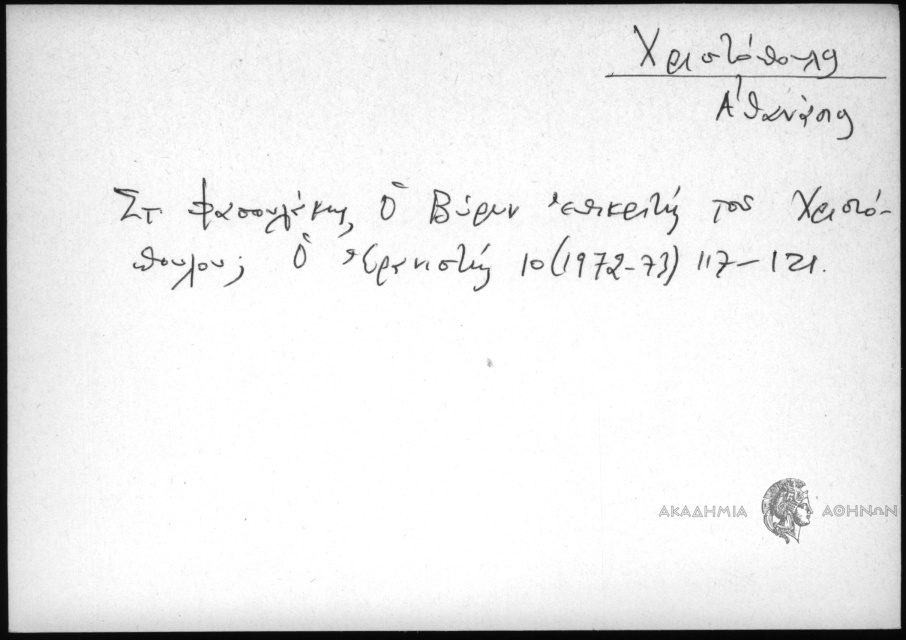 Χριστόπουλος
Ἀθανάσιος
Στ. Φασουλάκης, Ὁ Βύρων ἐπικριτής τοῦ Χριστό-
πουλου; Ὁ Ἐρανιστής 10 (1972-73) 117-121.
ΑΚΑΔΗΜΙΑ ΑΘΗΝΩΝ